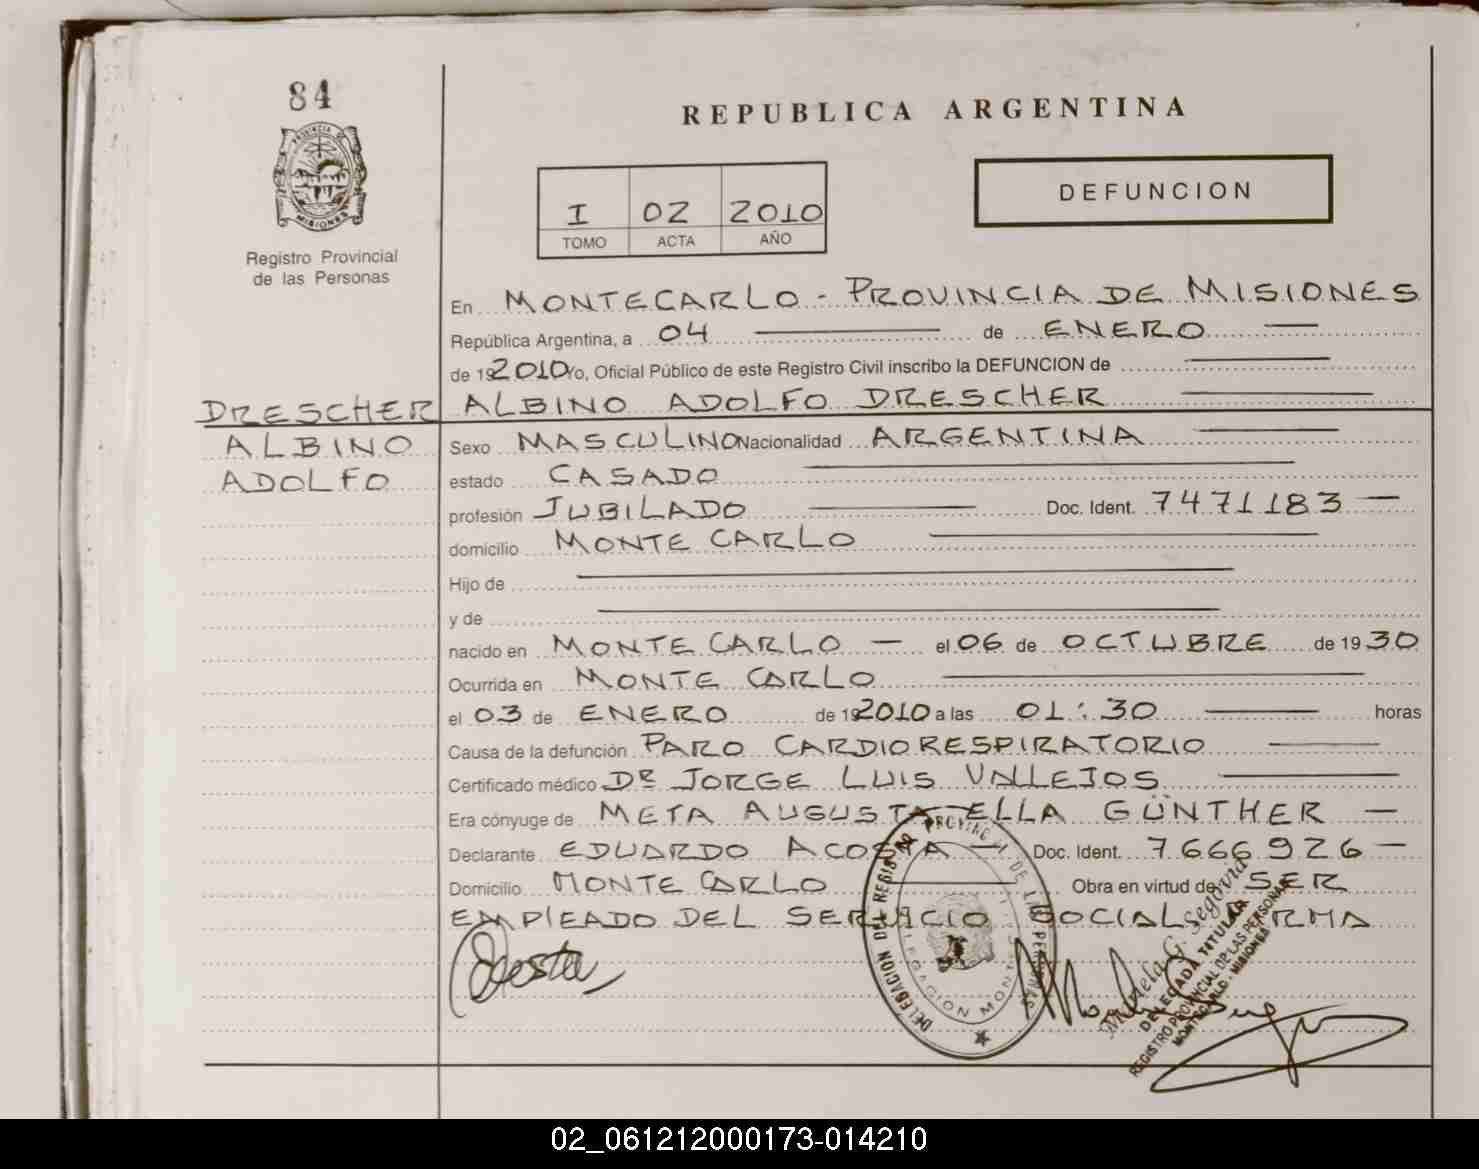 84
REPUBLICA ARGENTINA
PROVINCIA D
MISIONES
Registro Provincial
de las Personas
DEFUNCION
I 02 2010
TOMO ACTA AÑO
En MONTECARLO - PROVINCIA DE MISIONES
República Argentina, a 04 de ENERO
de 192010 Yo, Oficial Público de este Registro Civil inscribo la DEFUNCION de
DRESCHER ALBINO ADOLFO DRESCHER
ALBINO Sexo MASCULINO Nacionalidad ARGENTINA
ADOLFO estado CASADO
profesión JUBILADO Doc. Ident. 7471183 —
domicilio MONTE CARLO
Hijo de
y de
nacido en MONTE CARLO — el 06 de OCTUBRE de 1930
Ocurrida en MONTE CARLO
el 03 de ENERO de 192010 a las 01:30 horas
Causa de la defunción PARO CARDIORESPIRATORIO
Certificado médico Dr JORGE LUIS VALLEJOS
Era cónyuge de META AUGUSTA ELLA GÜNTHER —
Declarante EDUARDO ACOSTA — Doc. Ident. 7666926 —
Domicilio MONTE CARLO Obra en virtud de SER
EMPLEADO DEL SERVICIO SOCIAL FIRMA
Acosta
DELEGACION DEL REGISTRO PROVINCIAL DE LAS PERSONAS
DELEGACION MONT
Mariela G. Segovia
DELEGADA TITULAR
REGISTRO PROVINCIAL DE LAS PERSONAS
MONTECARLO - MISIONES
02_061212000173-014210